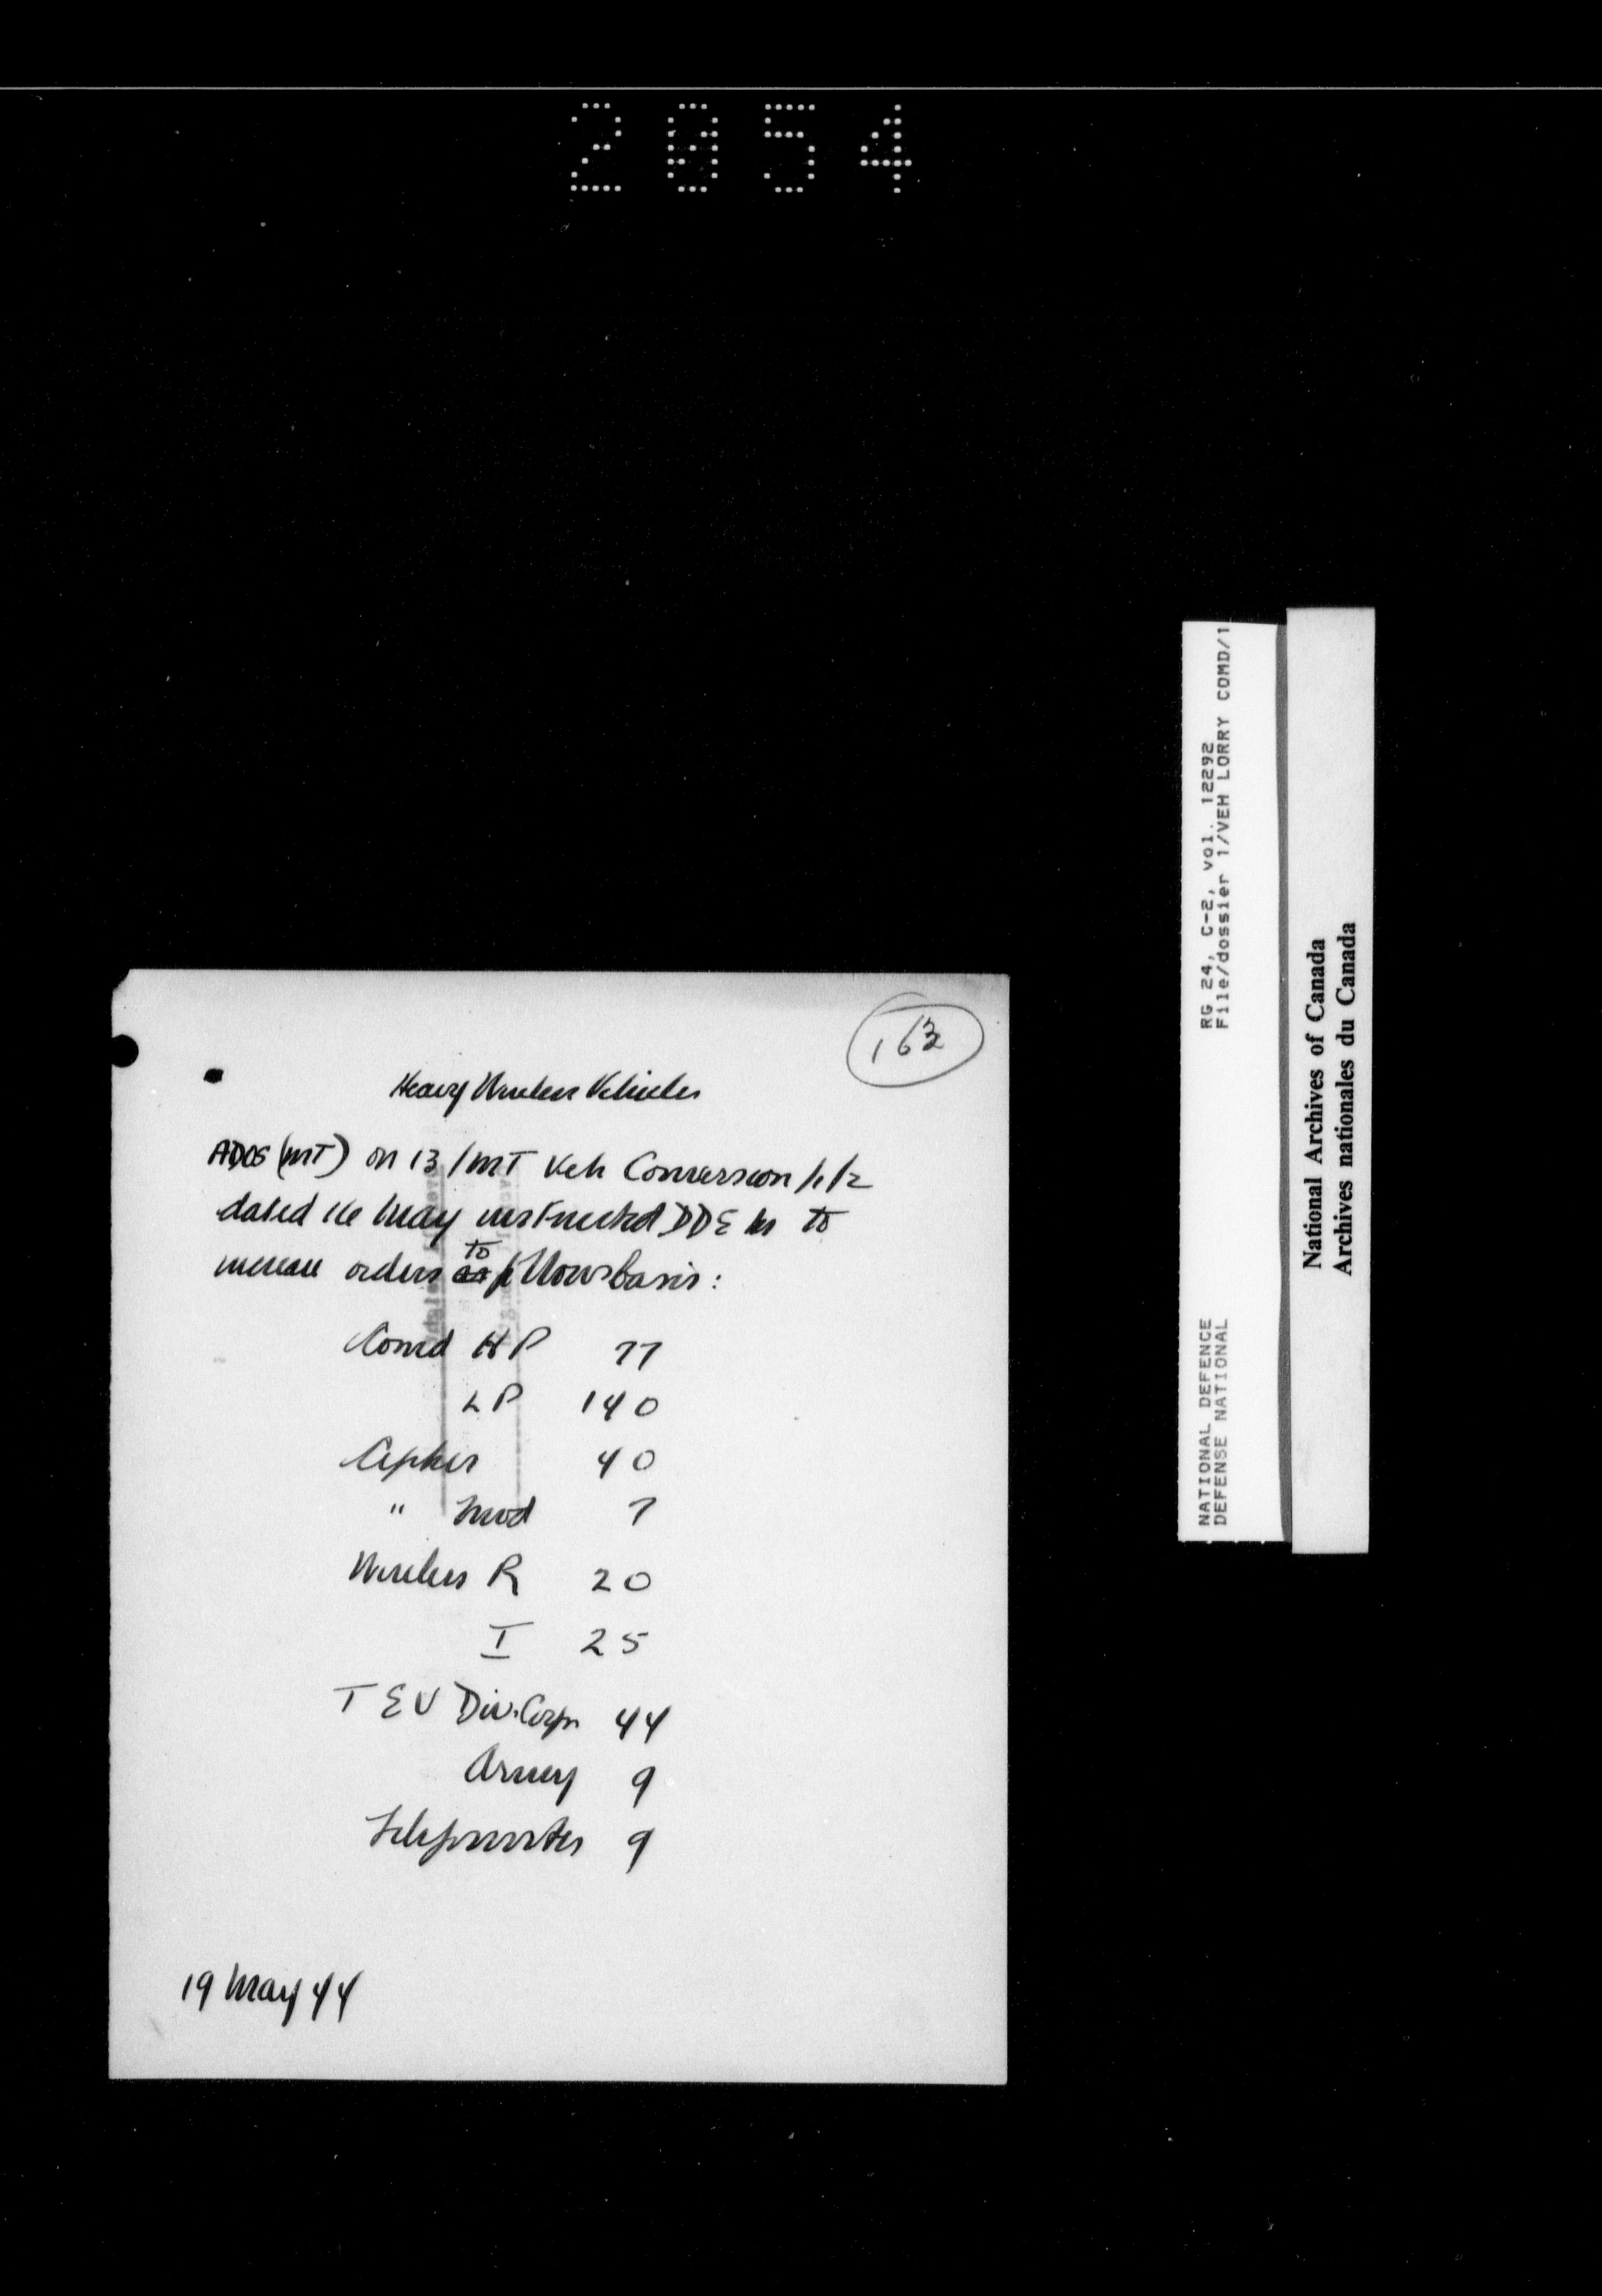 2054
163
Heavy Wireless Vehicles
ADOS (MT) on 13/MT Veh Conversion /1/2
dated 16 May instructed DDE to
increase orders to follows basis:
Comd HP 77
LP 140
Cipher 40
" Mod 7
Wireless R 20
I 25
TEV Div. Corps 44
Army 9
Teleprinter 9
19 May 44
RG 24, C-2, vol. 12292
File/dossier 1/VEH LORRY COMD/1
NATIONAL DEFENCE
DEFENSE NATIONAL
National Archives of Canada
Archives nationales du Canada